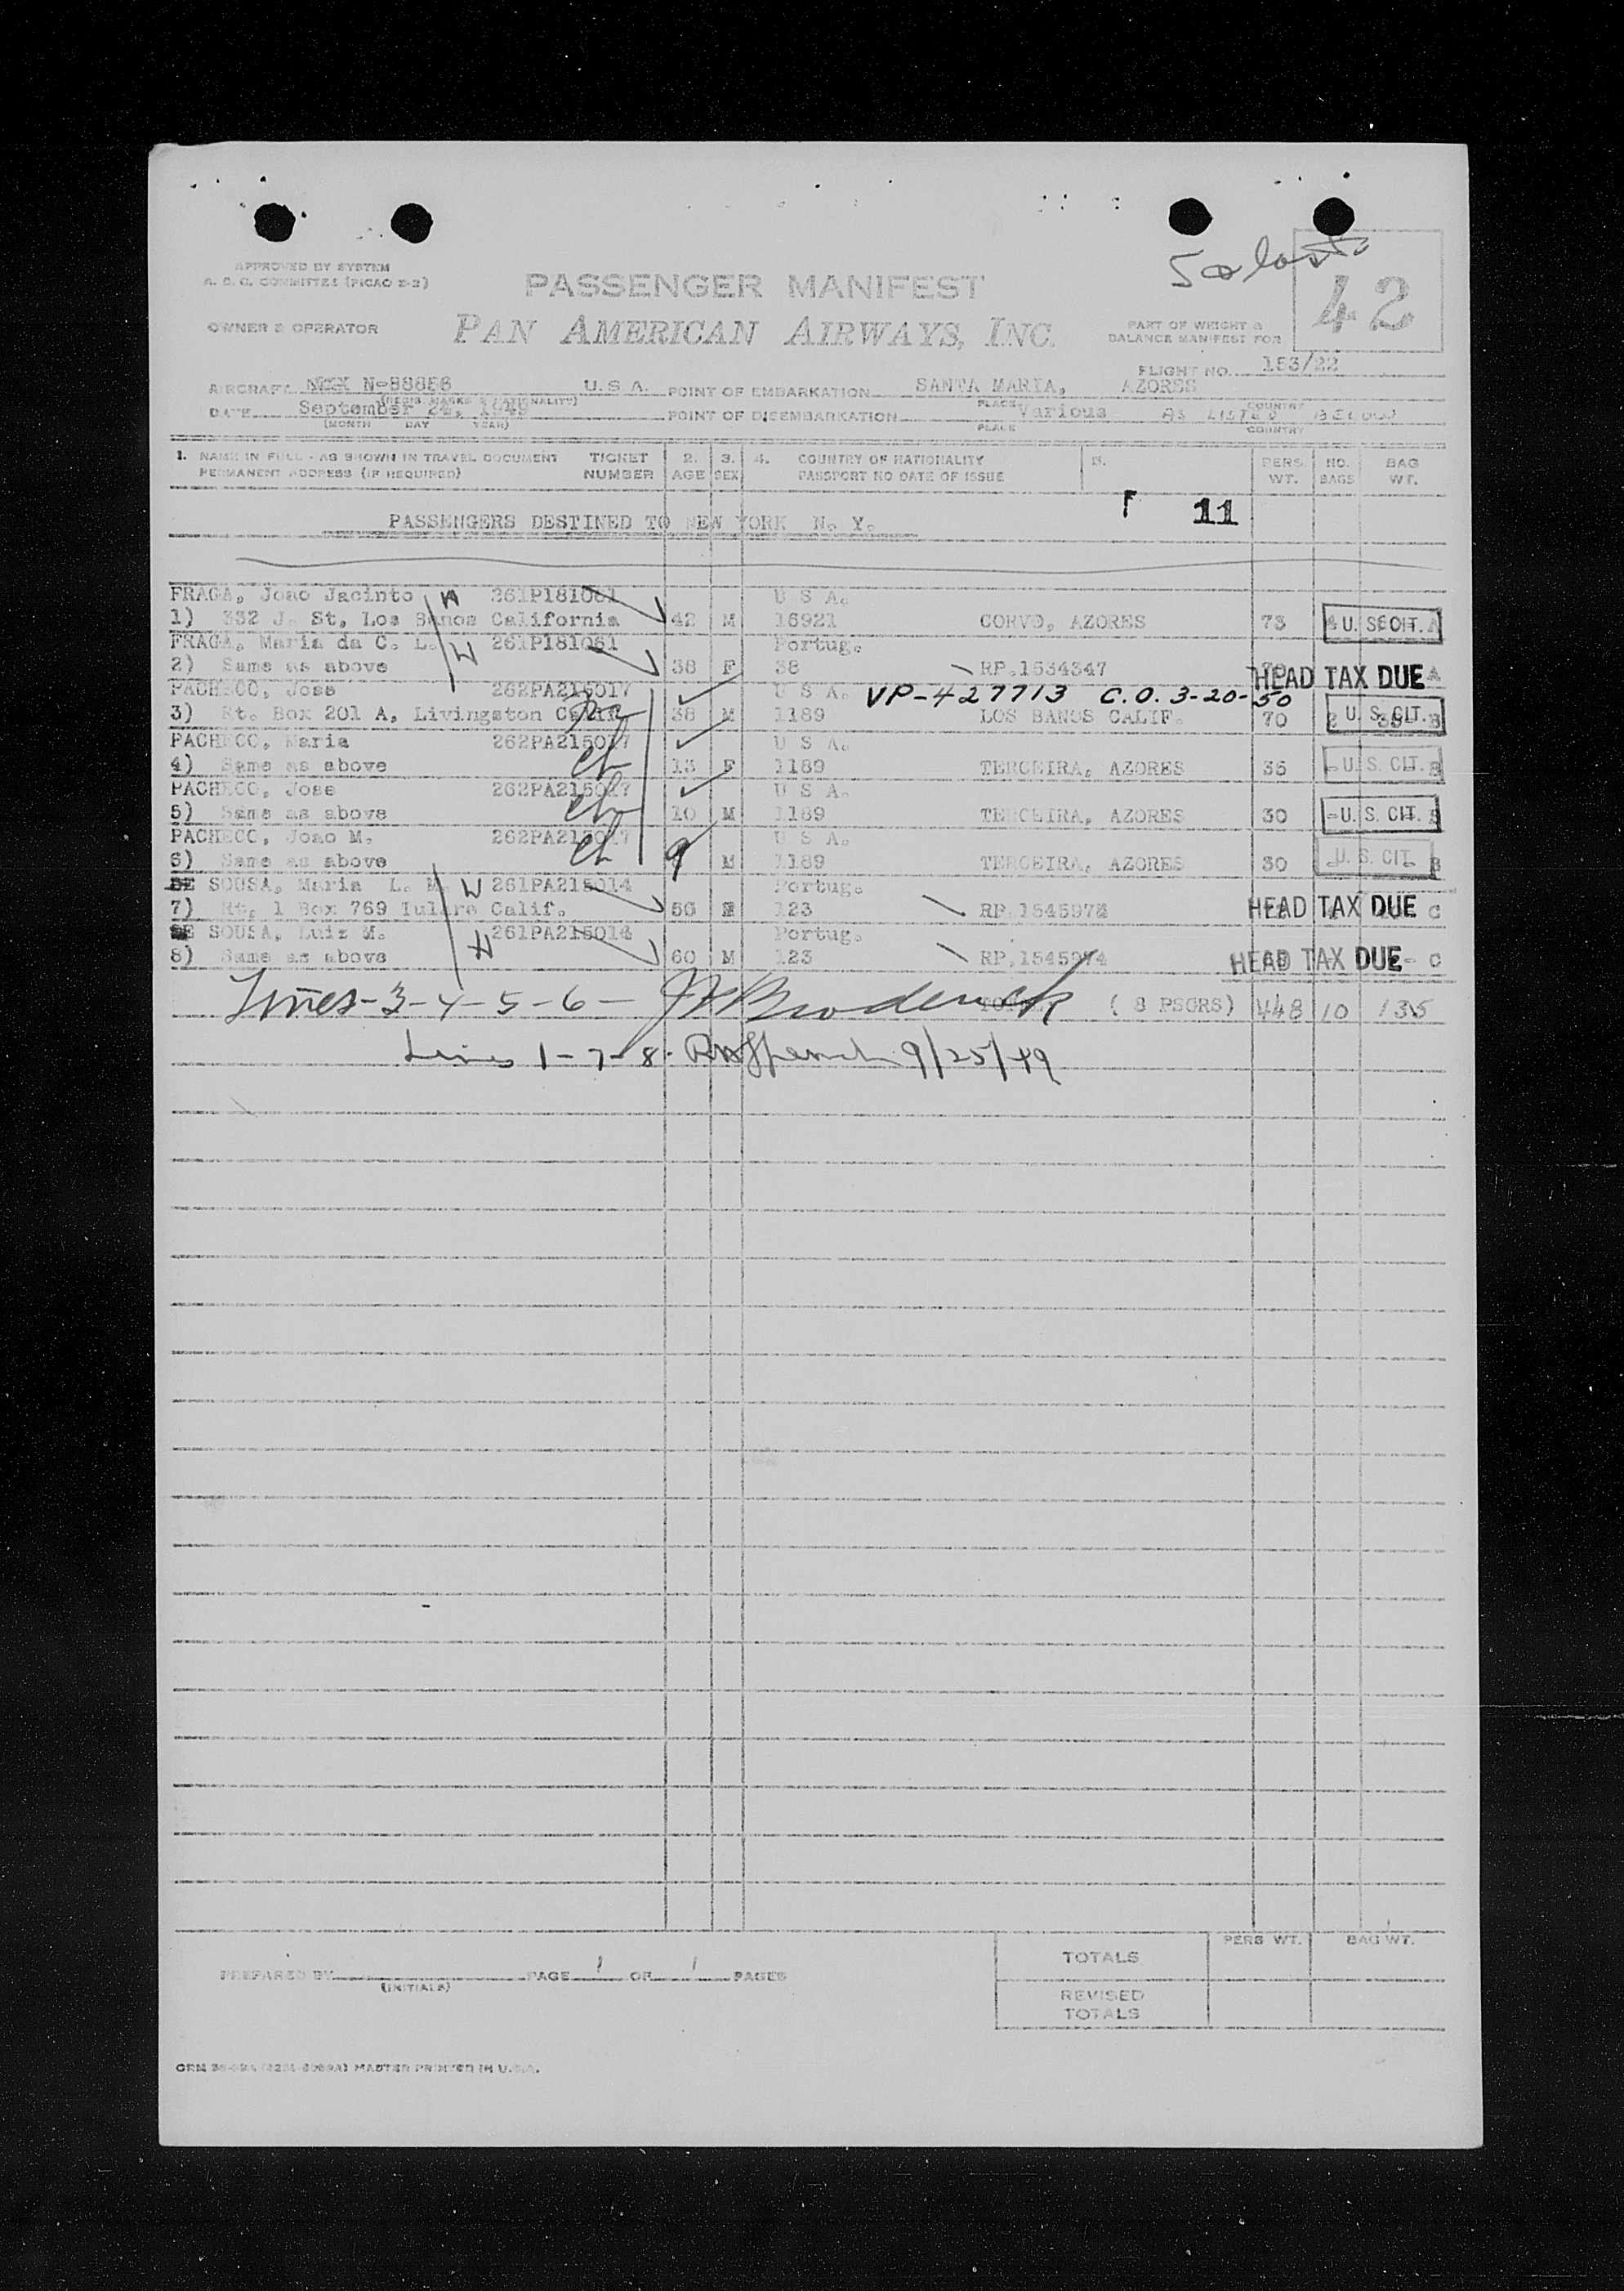 APPROVED BY SYSTEM
A. C. C. COMMITTEE (PICAO 2-2)
PASSENGER MANIFEST
42
OWNER & OPERATOR
PAN AMERICAN AIRWAYS, INC.
PART OF WEIGHT &
BALANCE MANIFEST FOR
FLIGHT NO. 153/22
AIRCRAFT N-88858 U.S.A. POINT OF EMBARKATION SANTA MARIA, AZORES
(REGIS. MARKS & NATIONALITY) PLACE COUNTRY
DATE September 24, 1949 POINT OF DISEMBARKATION Various AS LISTED BELOW
(MONTH DAY YEAR) PLACE COUNTRY
1. NAME IN FULL - AS SHOWN IN TRAVEL DOCUMENT TICKET 2. 3. 4. COUNTRY OF NATIONALITY 5. PERS. NO. BAG
PERMANENT ADDRESS (IF REQUIRED) NUMBER AGE SEX PASSPORT NO DATE OF ISSUE WT. BAGS WT.
11
PASSENGERS DESTINED TO NEW YORK N. Y.
FRAGA, Joao Jacinto 261P181061 U S A.
1) 332 J. St, Los Banos California 42 M 16921 CORVO, AZORES 73 U. S. CIT. A
FRAGA, Maria da C. L. 261P181061 Portug.
2) Same as above 38 F 38 RP.1534347 HEAD TAX DUE A
PACHECO, Jose 262PA215017 U S A. VP-427713 C.O. 3-20-50
3) Rt. Box 201 A, Livingston Calif. 38 M 1189 LOS BANOS CALIF. 70 2 U. S. CIT. B
PACHECO, Maria 262PA215017 U S A.
4) Same as above ch 13 F 1189 TERCEIRA, AZORES 35 - U. S. CIT. B
PACHECO, Jose 262PA215017 U S A.
5) Same as above ch 10 M 1189 TERCEIRA, AZORES 30 - U. S. CIT. B
PACHECO, Joao M. 262PA215017 U S A.
6) Same as above ch 9 M 1189 TERCEIRA, AZORES 30 - U. S. CIT. B
DE SOUSA, Maria L. M. 261PA215014 Portug.
7) Rt. 1 Box 769 Tulare Calif. 56 F 123 RP.1545973 HEAD TAX DUE C
DE SOUSA, Luiz M. 261PA215014 Portug.
8) Same as above 60 M 123 RP.1545974 HEAD TAX DUE - C
Lines - 3 - 4 - 5 - 6 - Broderick ( 8 PSGRS) 448 10 135
Lines 1 - 7 - 8 - 9/25/49
PREPARED BY PAGE 1 OF 1 PAGES
(INITIALS)
PERS WT. BAG WT.
TOTALS
REVISED
TOTALS
MASTER PRINTED IN U.S.A.